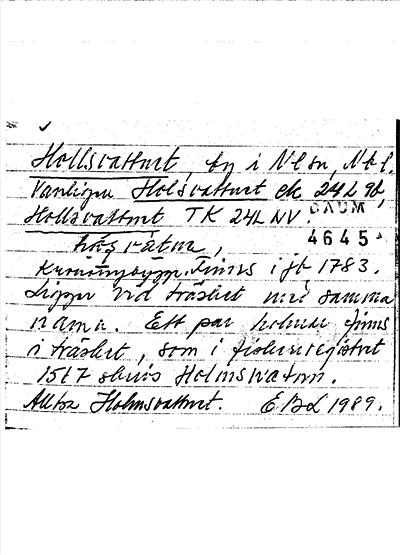 Hollsvattnet, by i Nlsn, Nbl.
Vanligen Holsvattnet ek 24L 9b,
Hollsvattnet TK 24L NV.
DAUM
4645
Kronnybygge. Finns i jb 1783.
Ligger vid träsket med samma
namn. Ett par holmar finns
i träsket, som i fiskeregistret
1567 skrivs Holmsvatnn.
Alltså Holmsvattnet. EBd 1989.